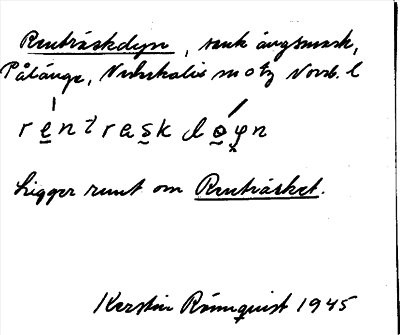 Renträskdyn, sank ängsmark,
Pålänge, Nederkalix sn o tg Norrb. l
rentrask døyn
Ligger runt om Renträsket.
Kerstin Rönnquist 1945